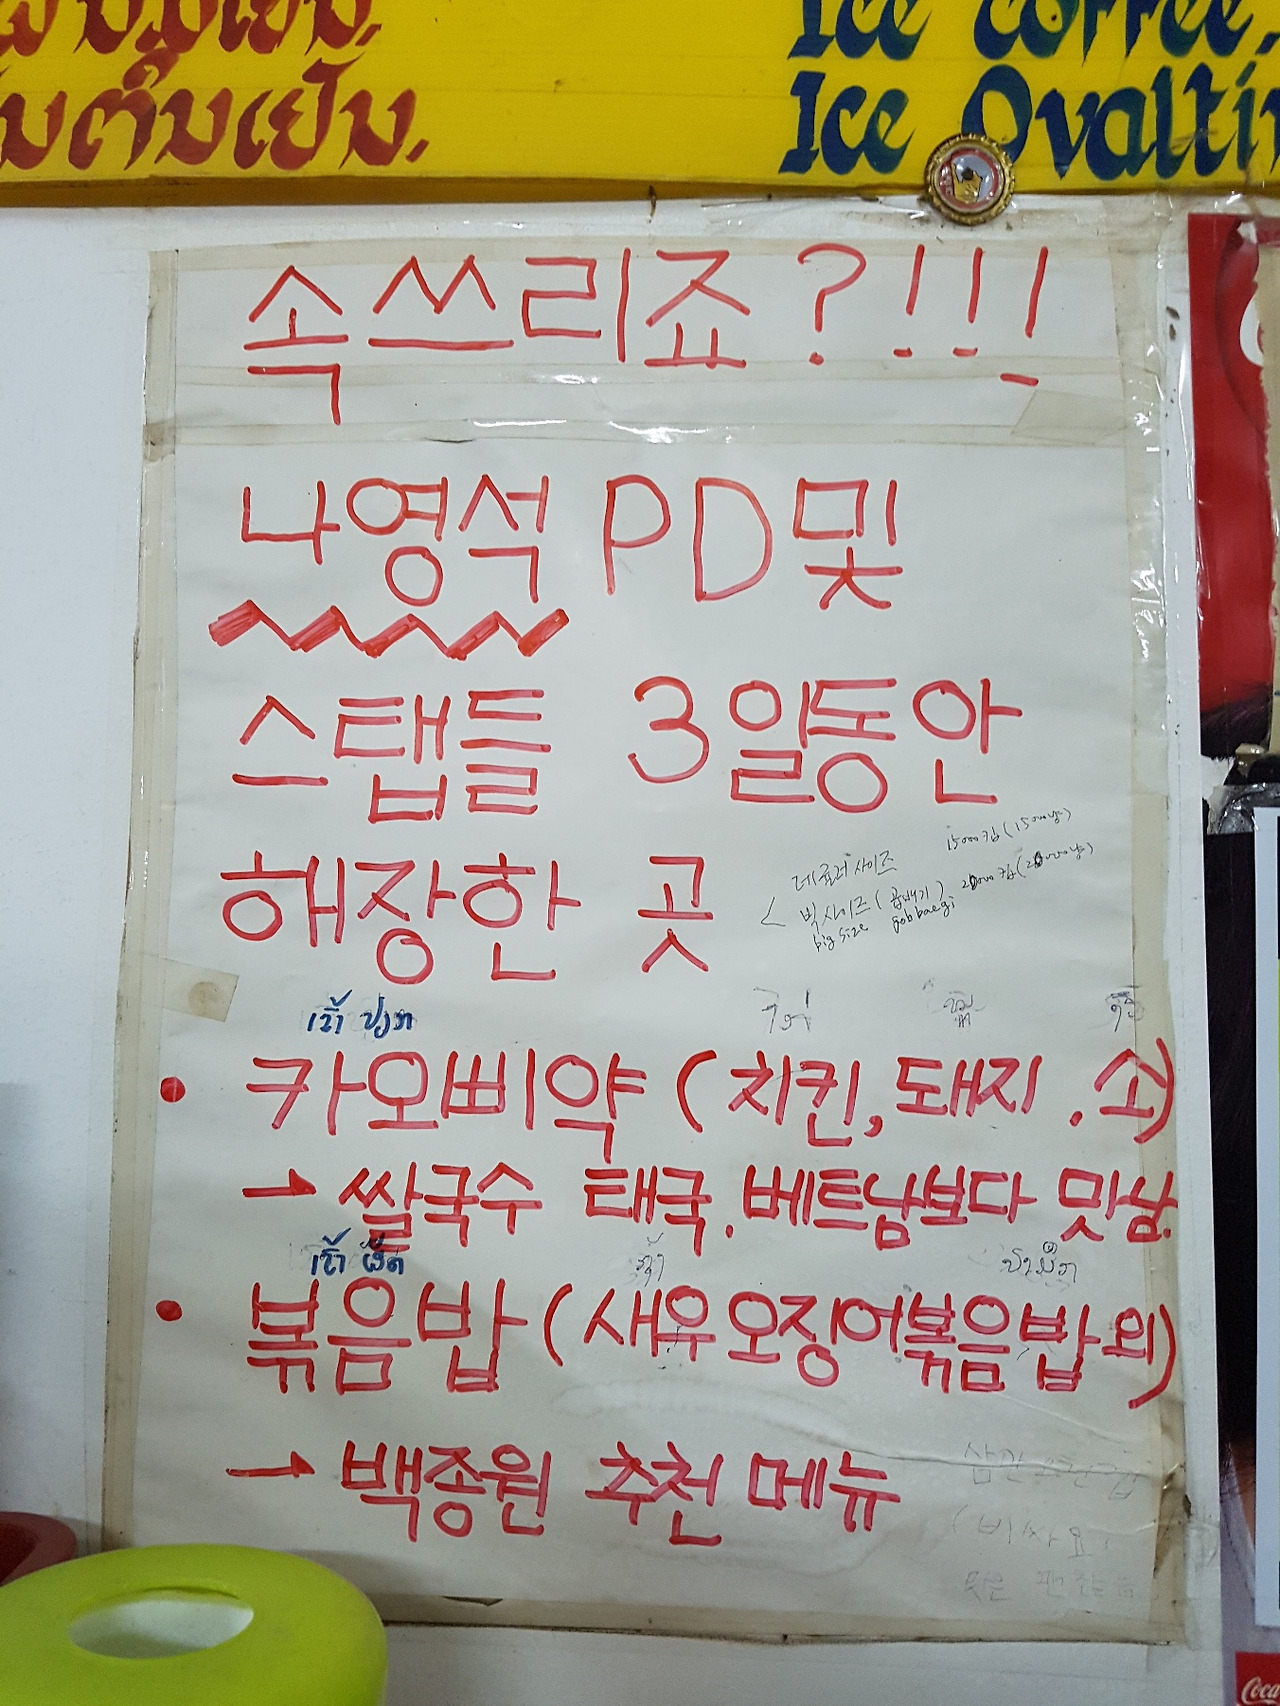 Ice coffee,
Ice Ovalti
속쓰리죠?!!!
나영석 PD및
스탭들 3일동안
해장한 곳
레귤러사이즈 15000킵(15000낍)
< 빅사이즈(곱배기) 20000킵(20000낍)
big size gobbaegi
ເຂົ້າ ປຽກ ໄກ່
• 카오삐약 (치킨, 돼지, 소)
→ 쌀국수 태국. 베트남보다 맛남.
ເຂົ້າ ຜັດ ກຸ້ງ ປາມຶກ
• 볶음밥 (새우 오징어볶음밥 외)
→ 백종원 추천 메뉴
(비싸요.
맛은